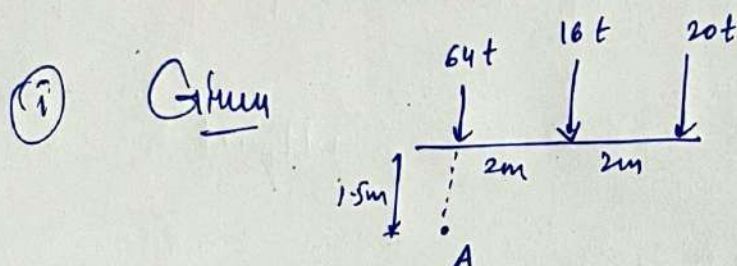 (i) Given
64t 16t 20t
2m 2m
1.5m
A